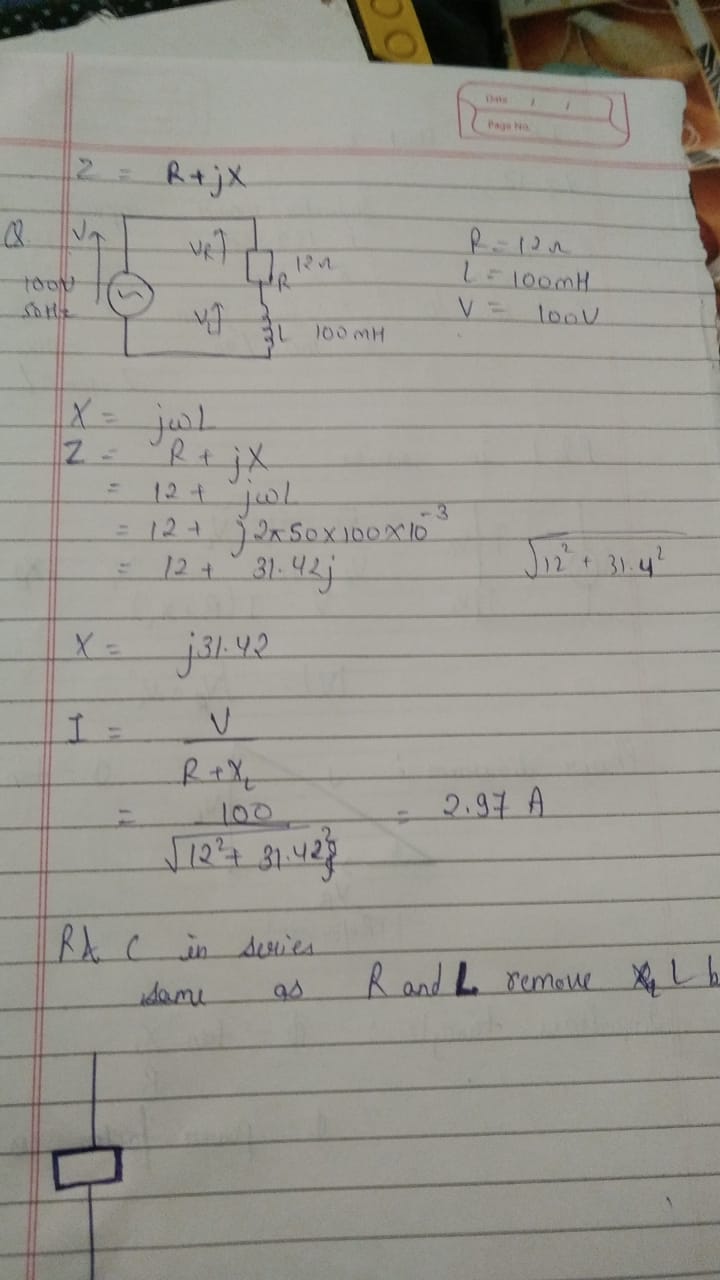 Date / /
Page No.
Z = R + jX
Q. V 100V 50Hz
VR R 12Ω
VL L 100mH
R = 12Ω
L = 100mH
V = 100V
X = jωL
Z = R + jX
= 12 + jωL
= 12 + j2π50×100×10⁻³
= 12 + 31.42j
√12² + 31.4²
X = j31.42
I = V / R + XL
= 100 / √12² + 31.42² = 2.97 A
C in series
same as R and L remove L b